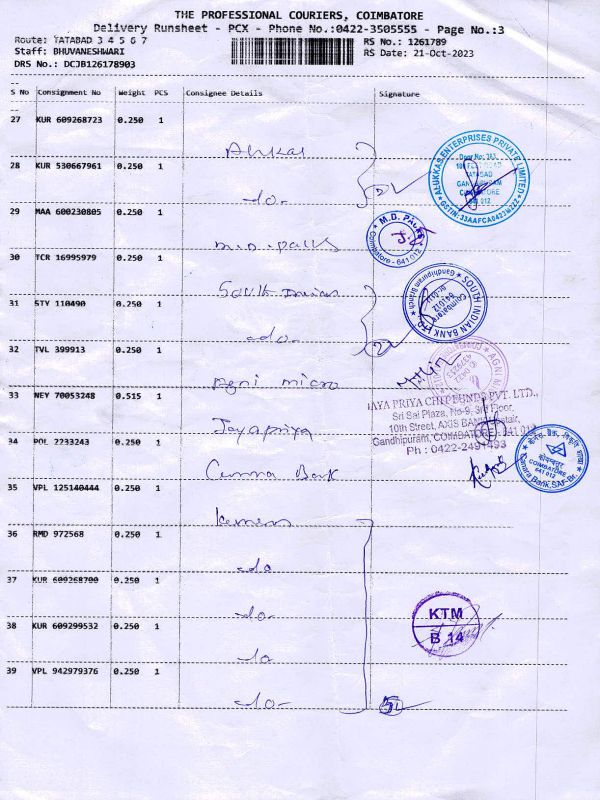 THE PROFESSIONAL COURIERS, COIMBATORE
Delivery Runsheet - PCX - Phone No.:0422-3505555 - Page No.:3
Route: TATABAD 3 4 5 6 7
RS No.: 1261789
Staff: BHUVANESHWARI
RS Date: 21-Oct-2023
DRS No.: DCJB126178903
S No Consignment No Weight PCS Consignee Details Signature
27 KUR 609268723 0.250 1
ALUKKAS ENTERPRISES PRIVATE LIMITED
Door No: 363,
TATABAD
COIMBATORE
641 012
28 KUR 530667961 0.250 1
-do-
29 MAA 600230805 0.250 1
M.D. Palls
Coimbatore - 641 012
30 TCR 16995979 0.250 1
South Indian
SOUTH INDIAN BANK LTD.
Gandhipuram Branch
Coimbatore
641 012
31 STY 110490 0.250 1
-do-
32 TVL 399913 0.250 1
Agni micro
AGNI
33 NEY 70053248 0.515 1
Jayapriya
JAYA PRIYA CHIT FUNDS PVT. LTD.,
Sri Sai Plaza, No-9, 3rd Floor,
10th Street, AXIS BANK
Gandhipuram, COIMBATORE - 641 012
Ph : 0422-2491493
34 POL 2233243 0.250 1
Canara Bank
COIMBATORE
641 012
Canara Bank, SAF-Br.
35 VPL 125140444 0.250 1
36 RMD 972568 0.250 1
-do
37 KUR 609268700 0.250 1
-do-
KTM
B 14
38 KUR 609299532 0.250 1
-do
39 VPL 942979376 0.250 1
-do-